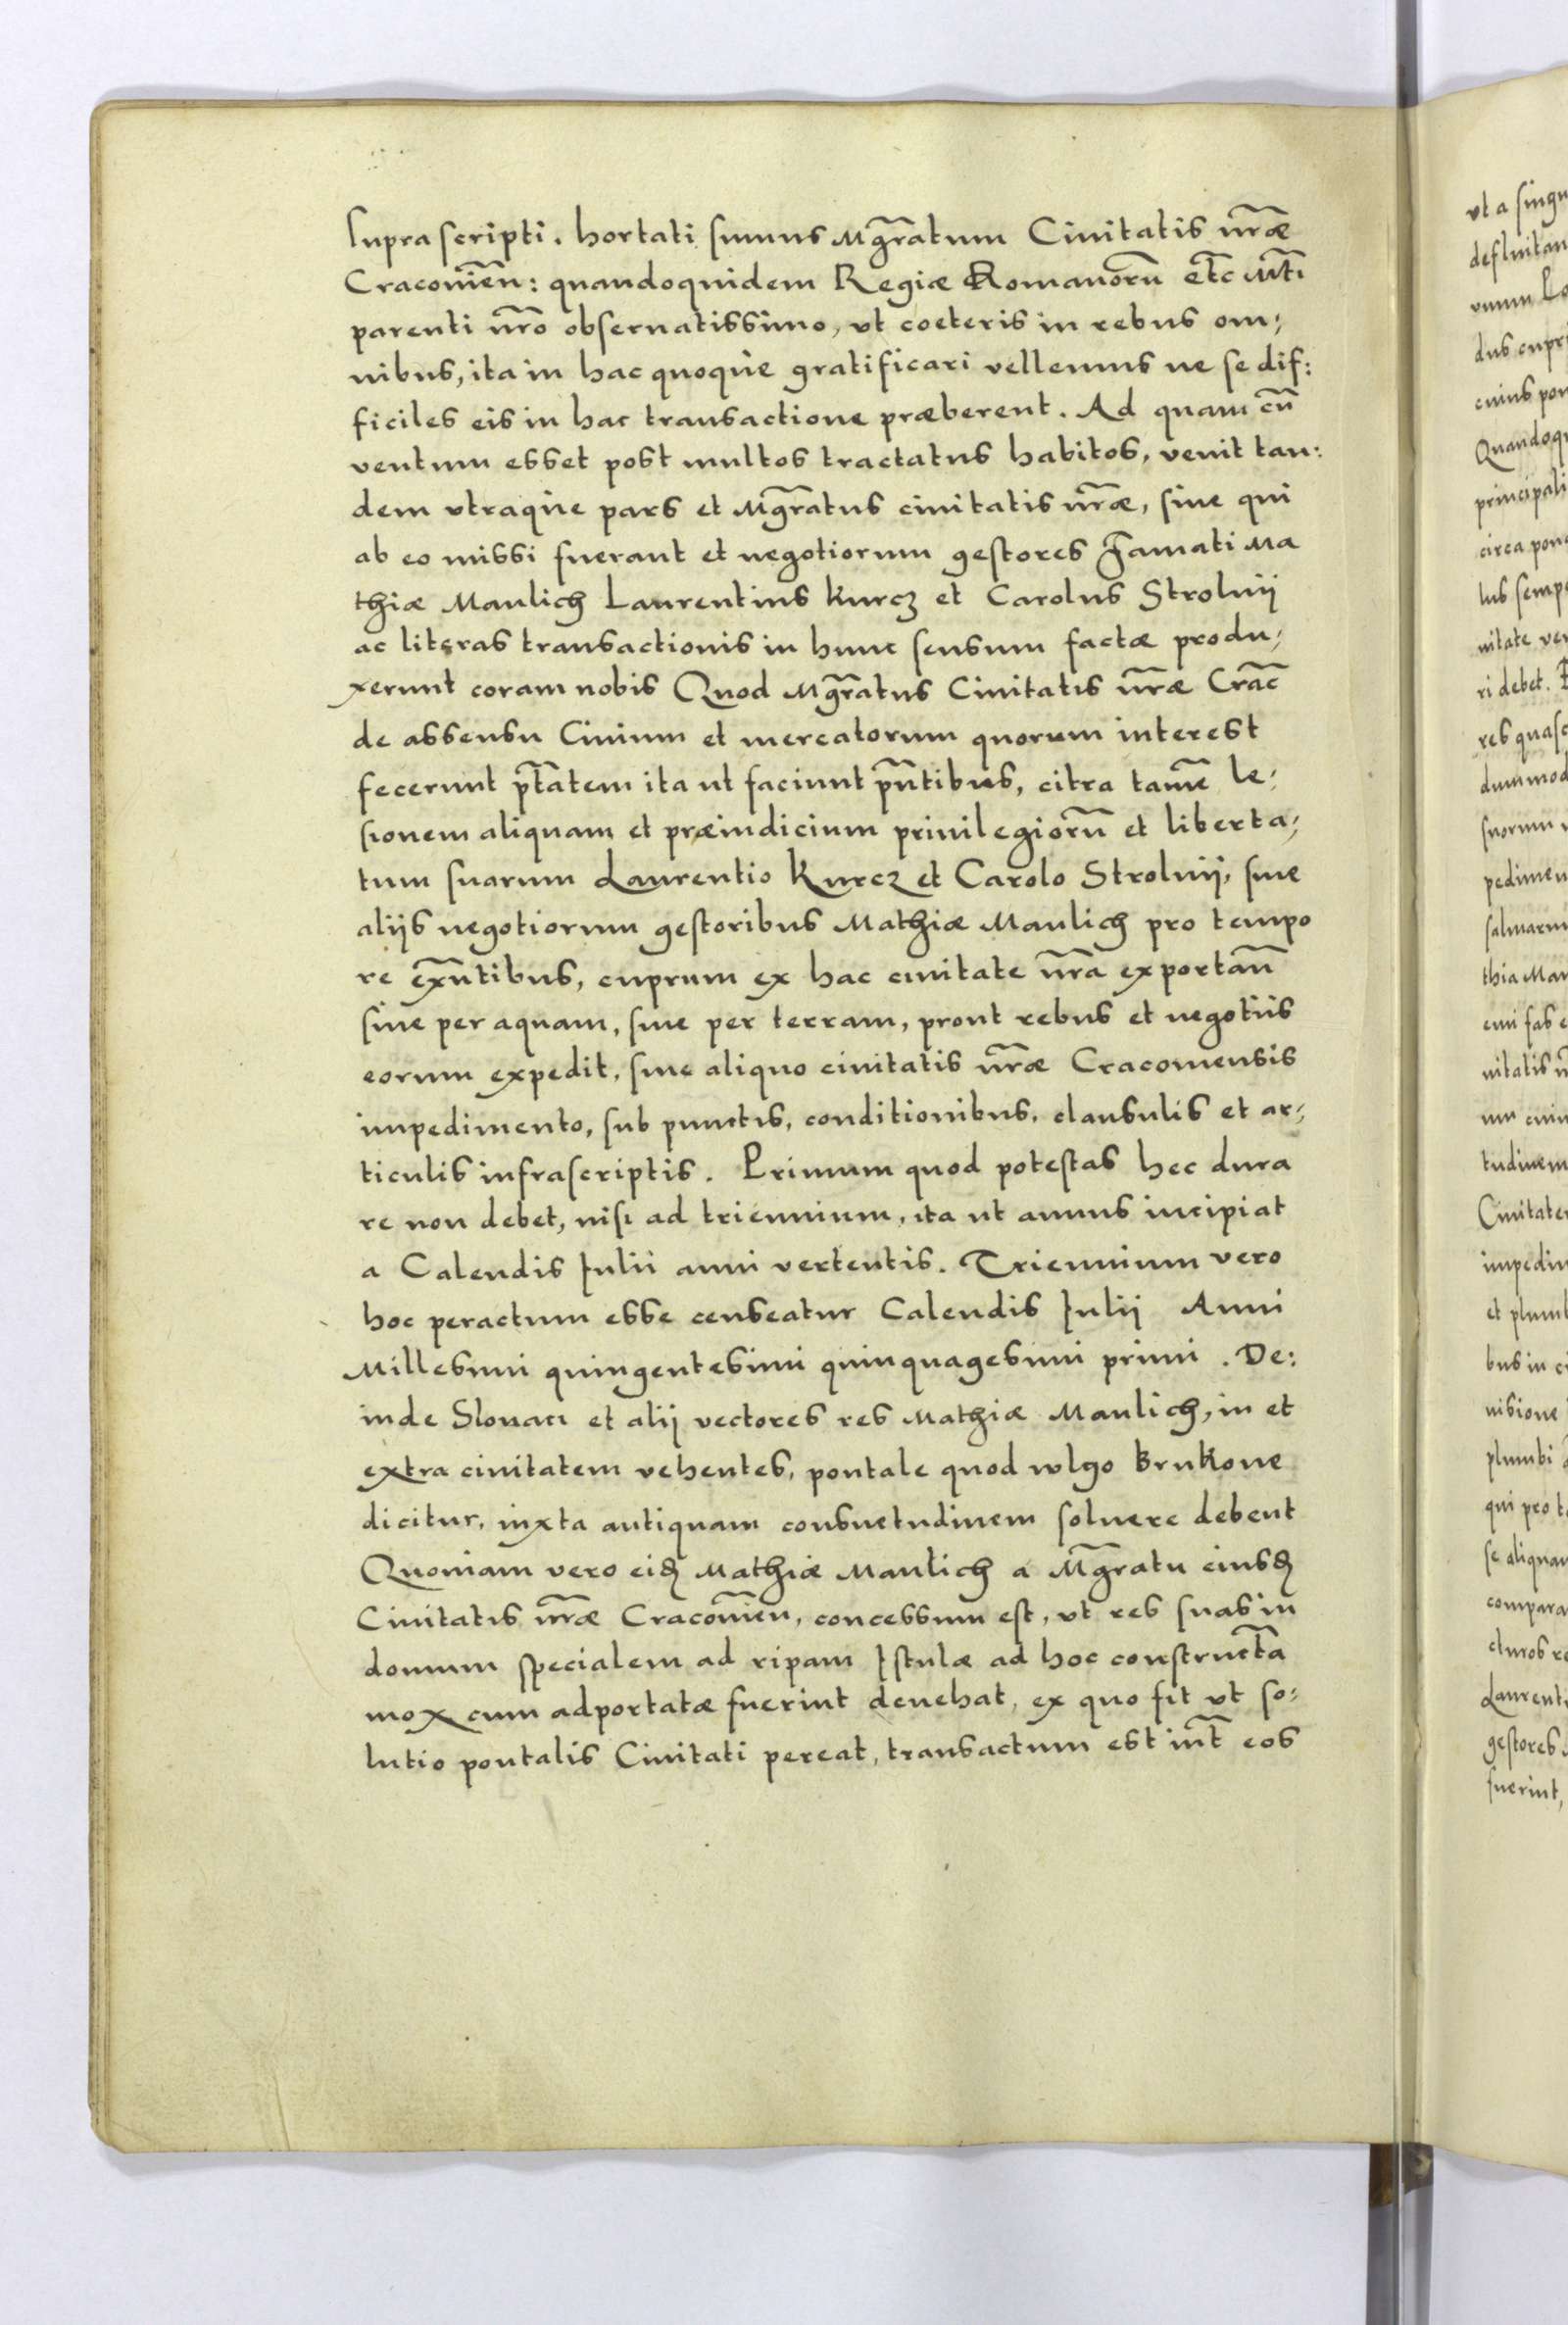 suprascripti. hortati sumus Mgr̃atum Ciuitatis nr̃æ
Cracouien̄: quandoquidem Regiæ Romanorū etc̃ Mt̃i
parenti nr̃o obseruatissimo, vt coeteris in rebus om:
nibus, ita in hac quoque gratificari vellemus ne se dif:
ficiles eis in hac transactione præberent. Ad quam cū
ventum esset post multos tractatus habitos, venit tan:
dem vtraque pars et Mgr̃atus ciuitatis nr̃æ, siue qui
ab eo missi fuerant et negotiorum gestores Famati Ma
thiæ Manlich Laurentius Kurcz et Carolus Strolnij
ac literas transactionis in hunc sensum factæ produ:
xerunt coram nobis Quod Mgr̃atus Ciuitatis nr̃æ Crac̃
de assensu Ciuium et mercatorum quorum interest
fecerunt pt̃atem ita ut faciunt pñtibus, citra tamē le:
sionem aliquam et præiudicium priuilegiorū et liberta:
tum suarum Laurentio Kurcz et Carolo Strolnij, siue
aliis negotiorum gestoribus Mathiæ Manlich pro tempo
re exñtibus, cuprum ex hac ciuitate nr̃a exportan̄
siue per aquam, siue per terram, prout rebus et negotiis
eorum expedit, sine aliquo ciuitatis nr̃æ Cracouiensis
impedimento, sub punctis, conditionibus, clausulis et ar:
ticulis infrascriptis. Primum quod potestas hec dura
re non debet, nisi ad triennium, ita ut annus incipiat
a Calendis Iulii anni vertentis. Triennium vero
hoc peractum esse censeatur Calendis Iulij Anni
Millesimi quingentesimi quinquagesimi primi. De:
inde Slouaci et alij vectores res Mathiæ Manlich, in et
extra ciuitatem vehentes, pontale quod wlgo Brukone
dicitur, iuxta antiquam consuetudinem soluere debent
Quoniam vero eidꝫ Mathiæ Manlich a Mgr̃atu eiusdꝫ
Ciuitatis nr̃æ Cracouien̄, concessum est, vt res suas in
domum specialem ad ripam Istulæ ad hoc constructā
mox cum adportatæ fuerint deuehat, ex quo fit vt so:
lutio pontalis Ciuitati pereat, transactum est int̃ eos